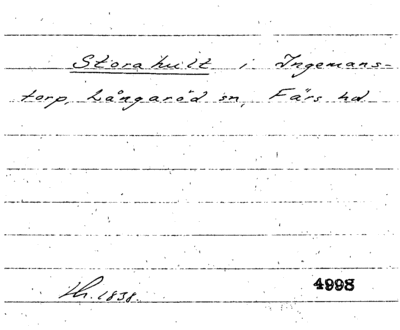 Storahult i Ingemans-
torp, Långaröd sn, Färs hd
Lh. 1838.
4998